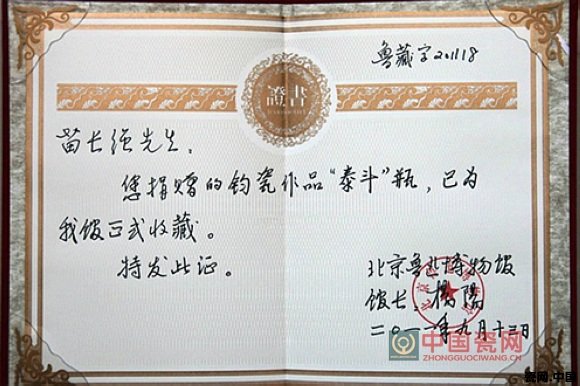 鲁藏字201118
證書
苗长强先生，
您捐赠的钧瓷作品“泰斗”瓶，已为
我馆正式收藏。
特发此证。
北京鲁迅博物馆
馆长：楊陽
二〇一一年九月十三日
中国瓷网
ZHONGGUOCIWANG.COM
瓷网.中国